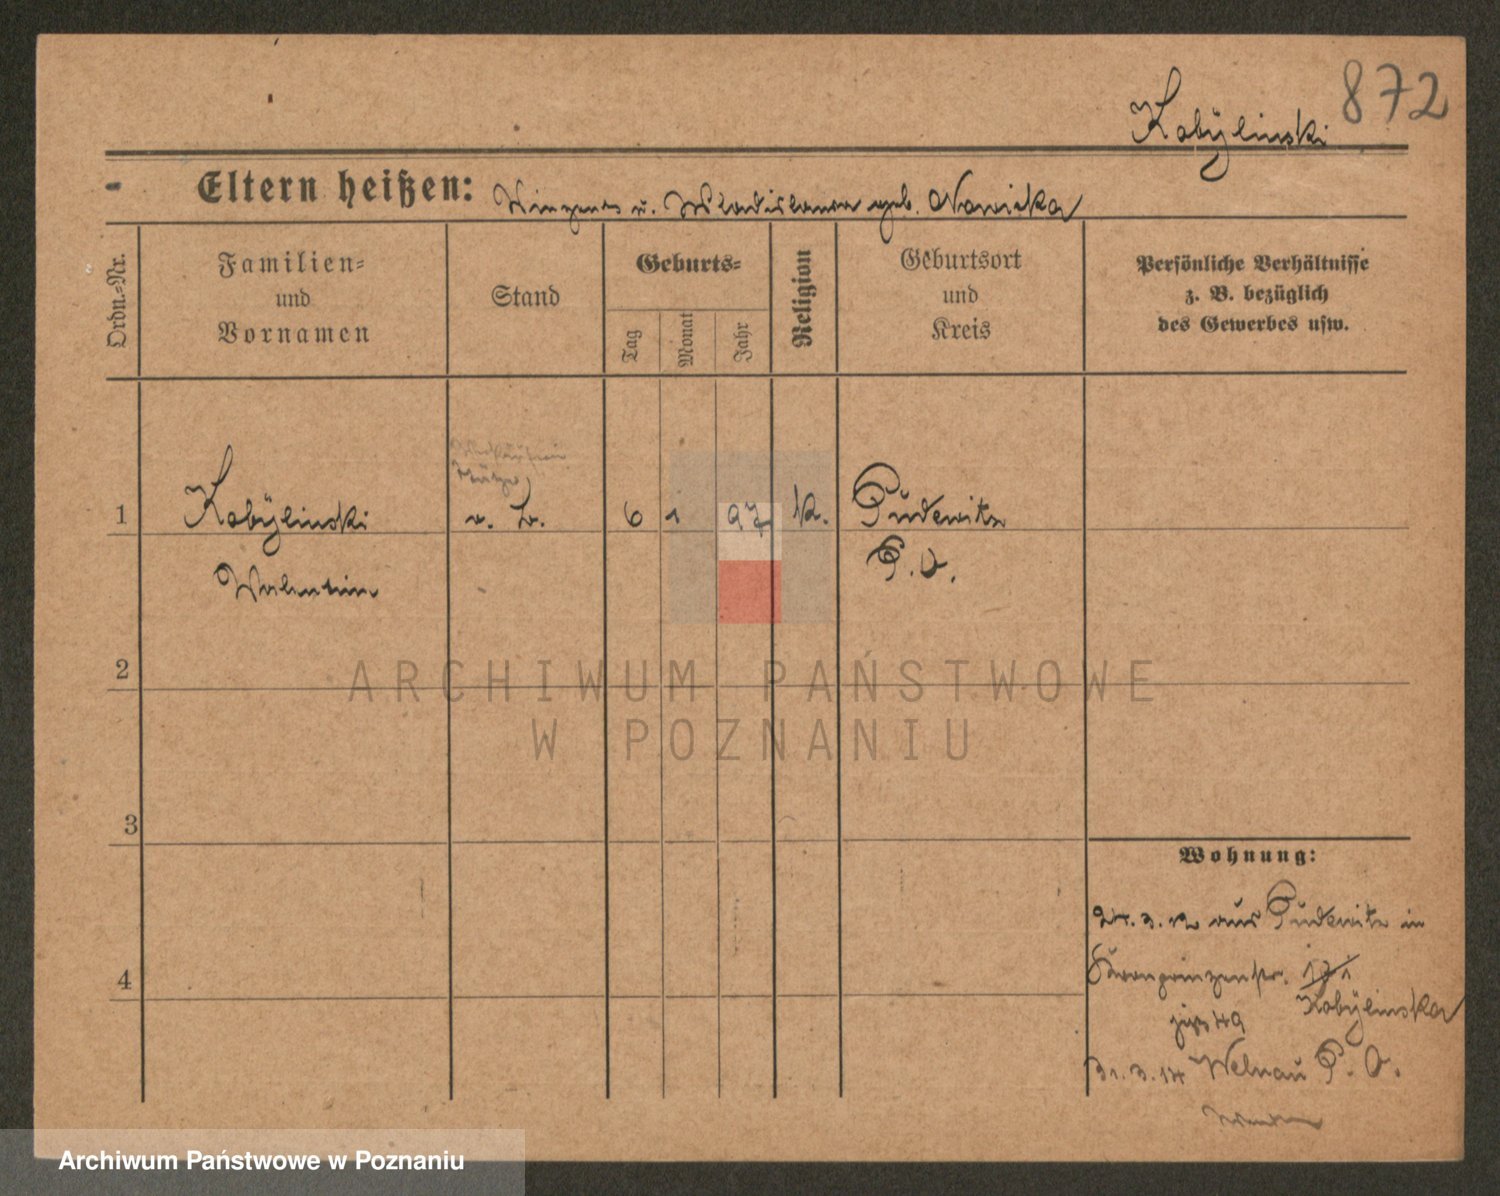 872
Kobÿlinski
Eltern heißen: Vinzent u. Wladislawa geb. Nowicka
Ordn.-Nr.
Familien-
und
Vornamen
Stand
Geburts-
Tag
Monat
Jahr
Religion
Geburtsort
und
Kreis
Persönliche Verhältnisse
z. B. bezüglich
des Gewerbes usw.
1
Kobÿlinski
Walentin
6 1 97 k. Pudewitz
P. O.
2
3
4
Wohnung:
24.3.12 aus Pudewitz in
Kronprinzenstr.
Kobÿlinska
jetzt 49
31.3.14 Welnau P. O.
ARCHIWUM PAŃSTWOWE
W POZNANIU
Archiwum Państwowe w Poznaniu